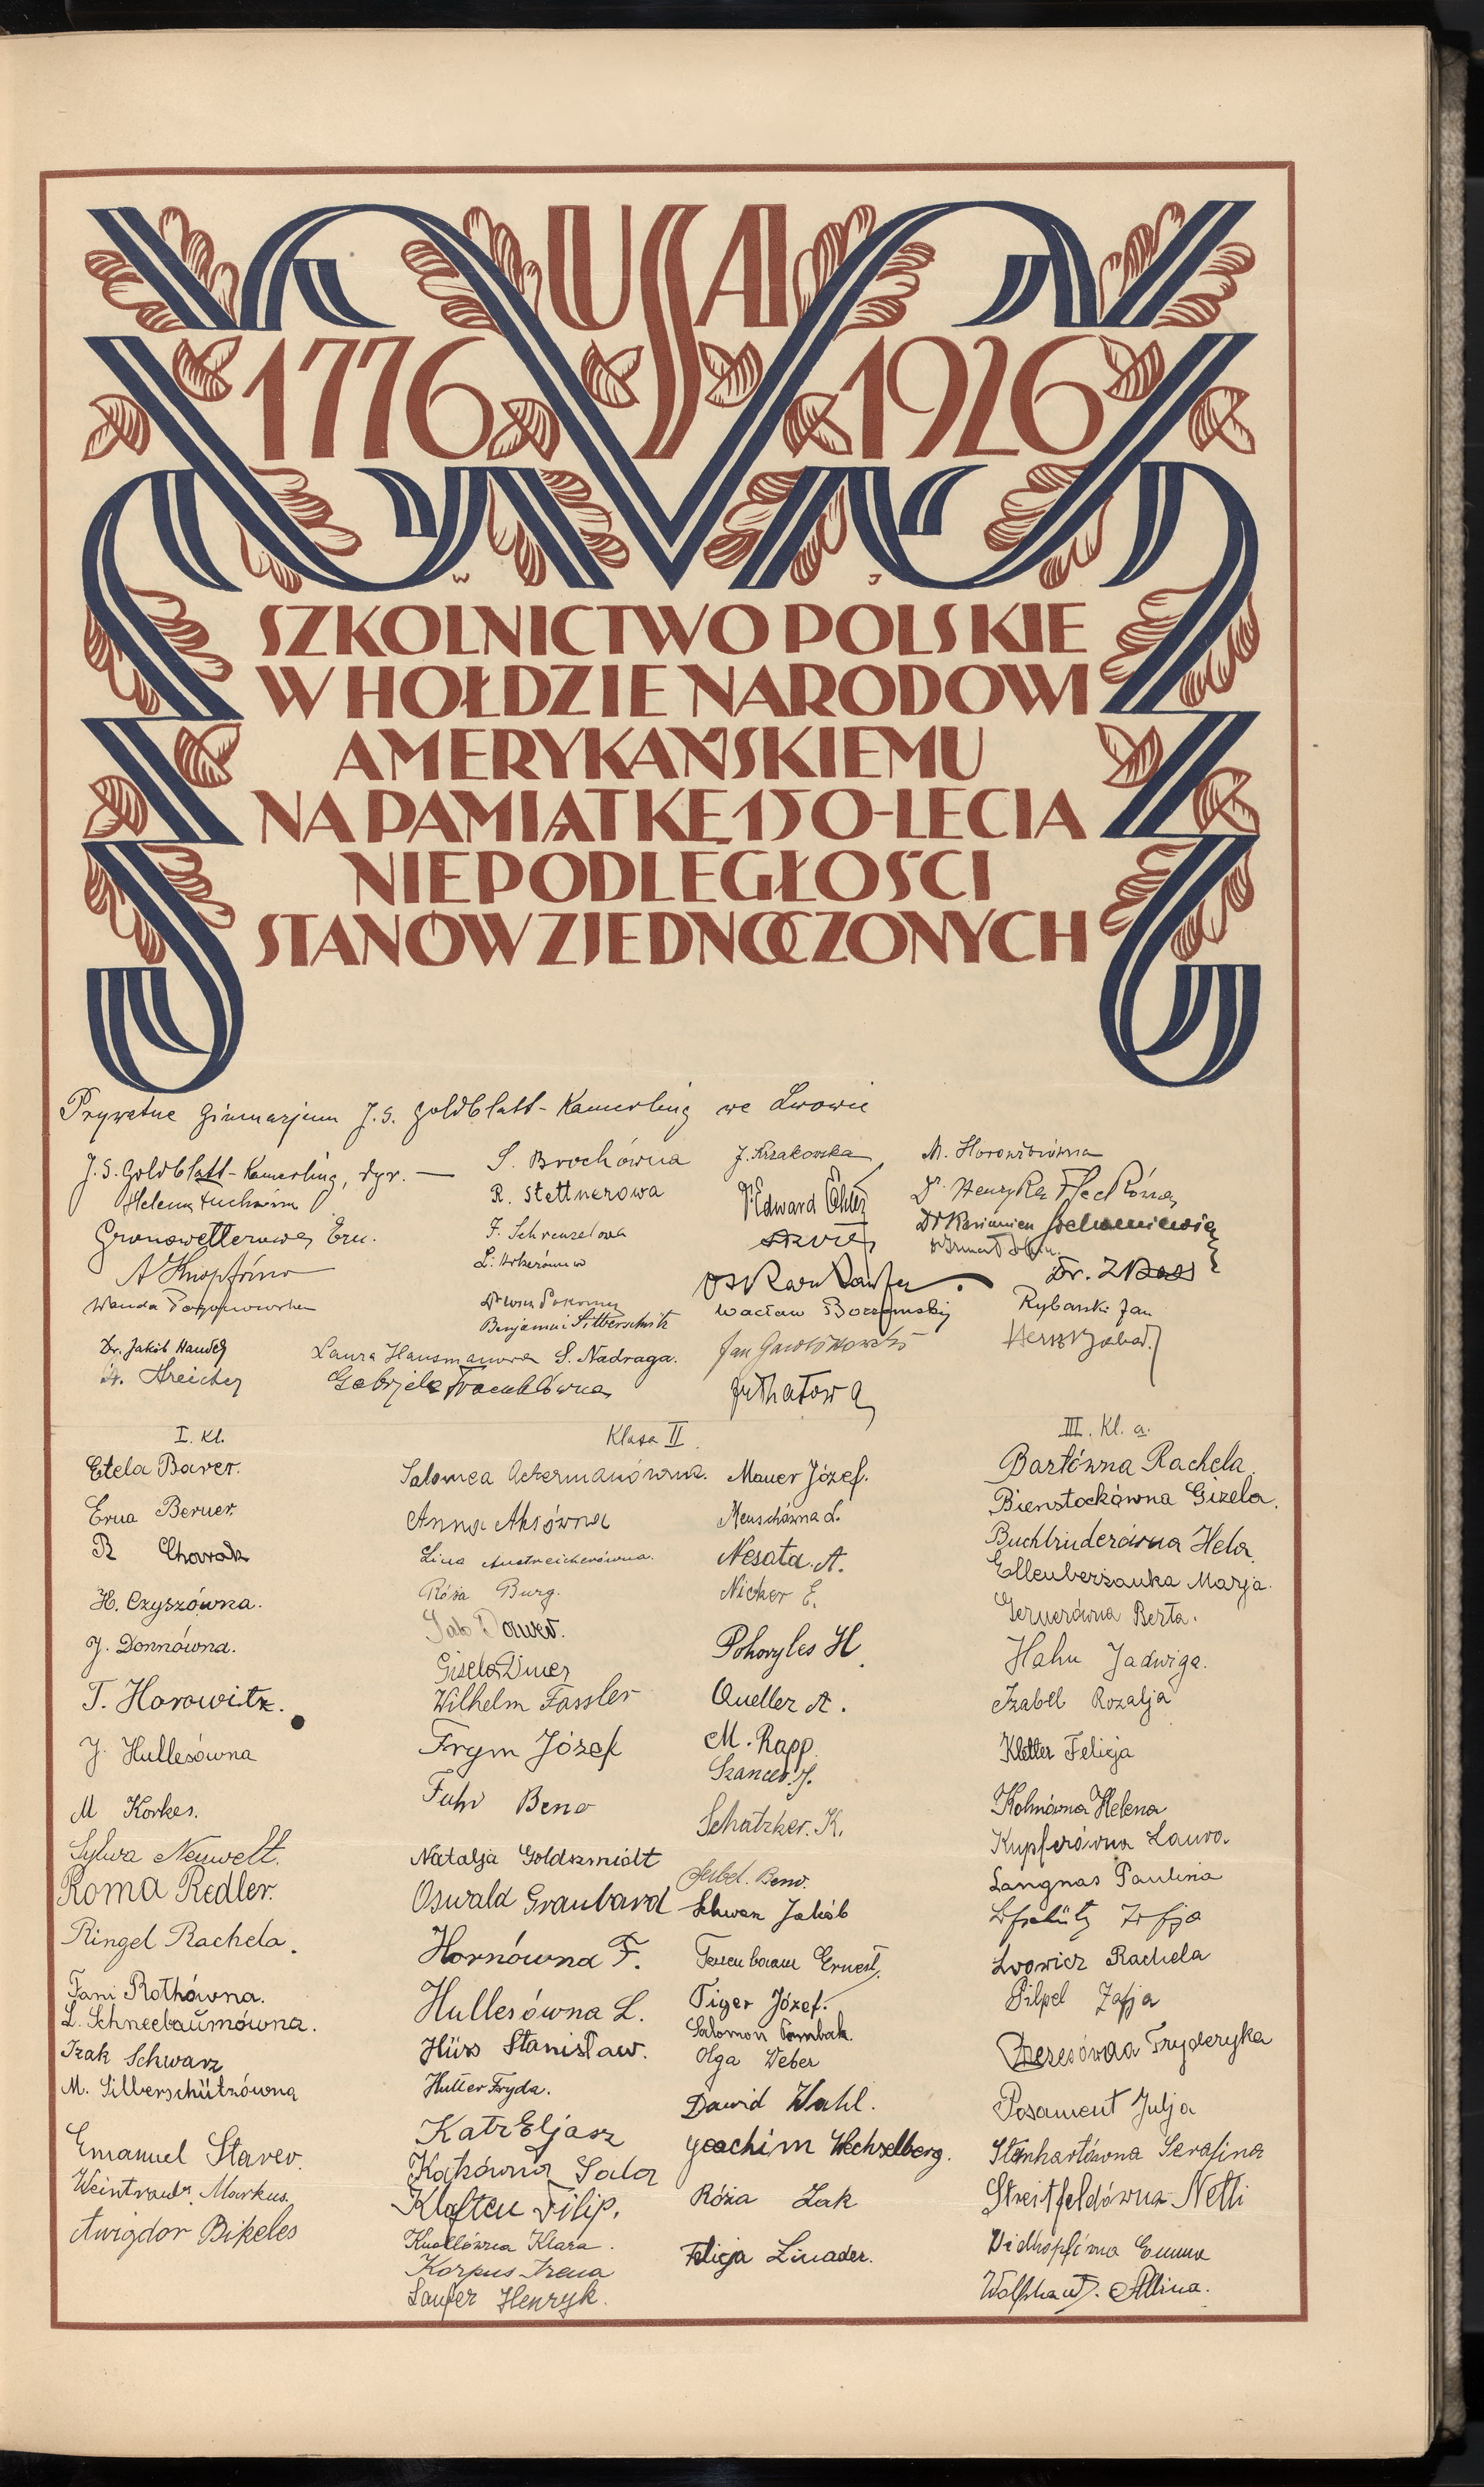 USA
1776 1926
W J
SZKOLNICTWO POLSKIE
W HOŁDZIE NARODOWI
AMERYKAŃSKIEMU
NA PAMIĄTKĘ 150-LECIA
NIEPODLEGŁOŚCI
STANÓW ZJEDNOCZONYCH
Prywatne Gimnazjum J.S. Goldblatt-Kamerling we Lwowie
J.S. Goldblatt-Kamerling, dyr.
Helena
Gronowetterowa Ern.
A Knopfówna
Wanda
Dr. Jakób Handel
S. Brochówna
R. Stettnerowa
F. Schrenzelowa
Benjamin Silberschütz
Laura Hausmanowa S. Nadraga.
Gabrjela Fraenklówna
J. Krzakowska
Dr Edward
Wacław Borzemski
Jan
M. Horowitzówna
Dr. Henryka Fleckówna
Dr
Dr. Z
Rybarski Jan
I. Kl.
Etela Baver.
Erna Berner.
R Charak
H. Czyszówna.
J. Dornówna.
T. Horowitz.
J. Hullesówna
M Korkes.
Sylwa Neuwelt.
Roma Redler.
Ringel Rachela.
Fani Rothówna.
L. Schneebaumówna.
Izak Schwarz
M. Silberschützówna
Emanuel Starer.
Weintraub Markus.
Awigdor Bikeles
Klasa II.
Salomea Ackermanówna.
Anna Aksówna
Lina Austreicherówna.
Róża Burg.
Gisela Diner
Wilhelm Fassler
Frym Józef
Fuhr Beno
Natalja Goldszmidt
Oswald Graubard
Hornówna F.
Hullesówna L.
Hüss Stanisław.
Hutter Fryda.
Katz Eljasz
Kątzówna Sala
Klaften Filip.
Knollówna Klara.
Korpus Irena
Laufer Henryk.
Mauer Józef.
Menschówna L.
Nesata. A.
Nicker E.
Pohoryles H.
Queller A.
M. Rapp
Szancer. J.
Schatzker. K.
Seibel. Beno.
Schwarz Jakób
Tenenbaum Ernest.
Tiger Józef.
Salomon Tombak.
Olga Weber
Dawid Wahl.
Joachim Wechselberg.
Róża Żak
Felicja Linader.
III. Kl. a.
Bartówna Rachela.
Bienstockówna Gizela.
Buchbinderówna Hela.
Ellenberżanka Marja.
Gernerówna Berta.
Hahn Jadwiga.
Izabel Rozalja
Kletter Felicja
Kolmówna Helena
Kupferówna Laura
Langnas Paulina
Zofja
Lwowicz Rachela
Pilpel Zofja
Fryderyka
Posament Julja
Steinhartówna Serafina
Streitfeldówna Netti
Widhopfówna Emma
Wolfshaut. Allina.